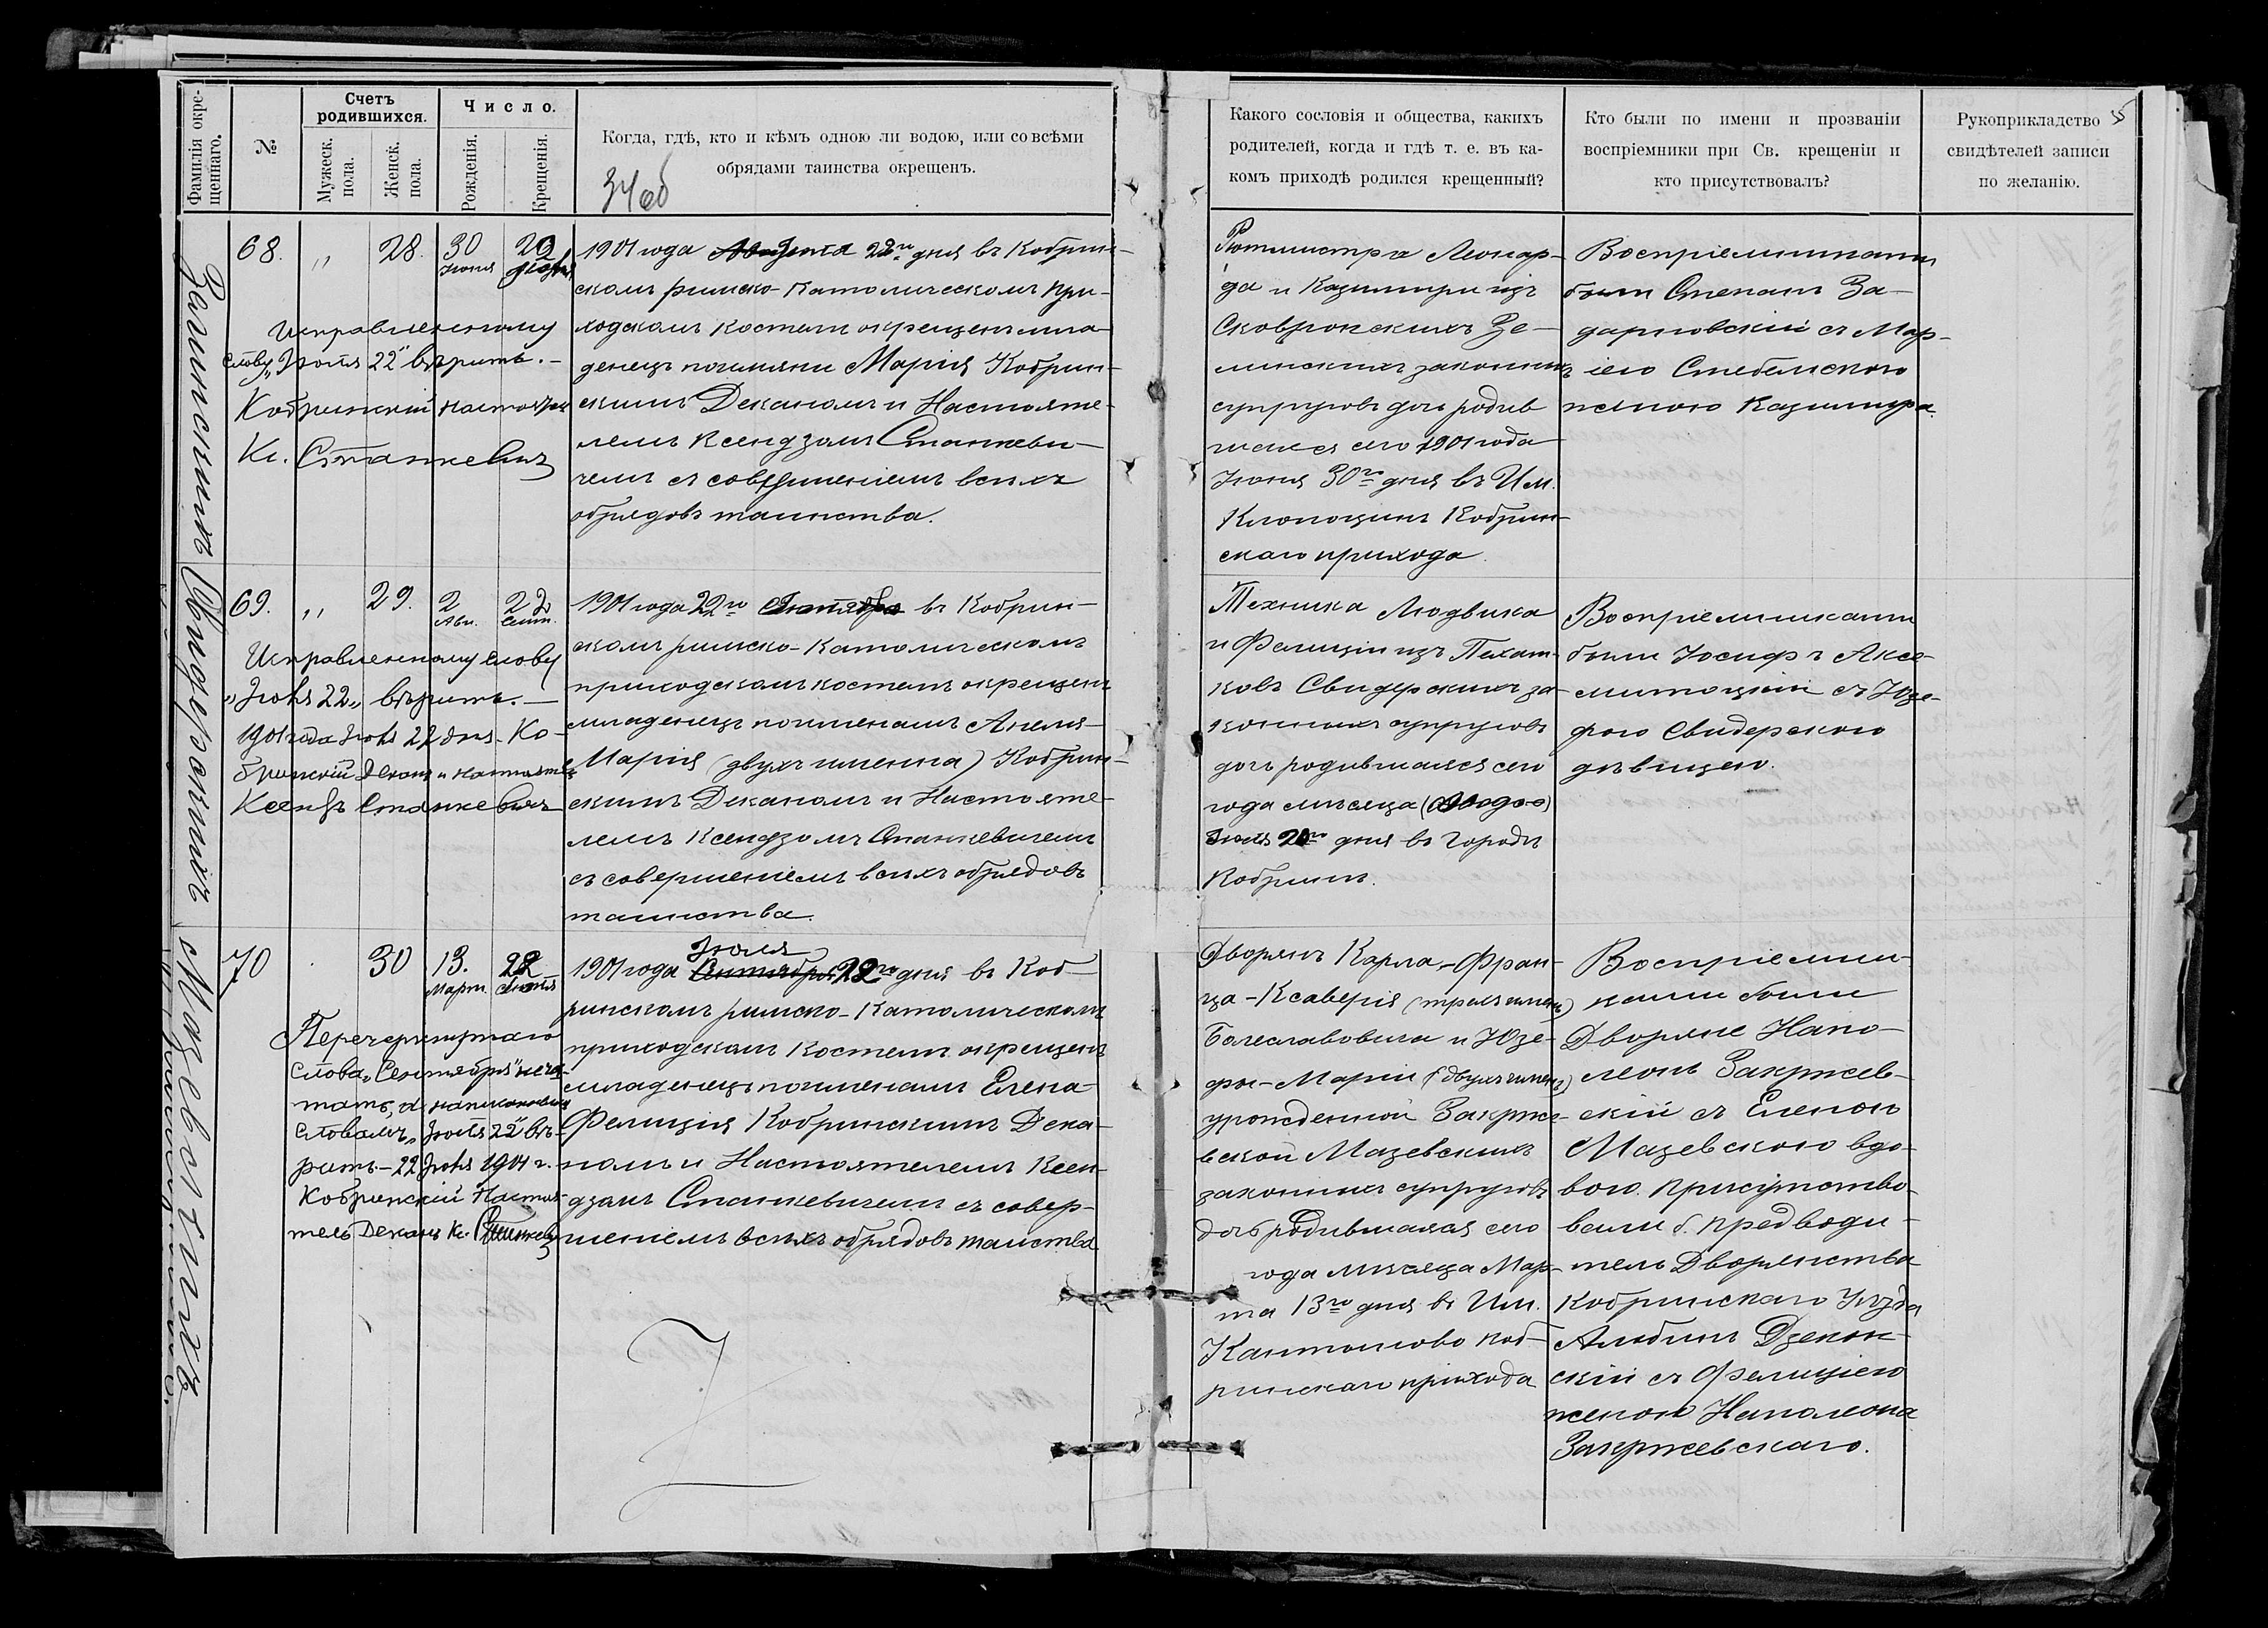 Фамилія окре-
щеннаго.
№
Счетъ
родившихся.
Мужеск.
пола.
Женск.
пола.
Число.
Рожденія.
Крещенія.
Когда, гдѣ, кто и кѣмъ одною ли водою, или со всѣми
обрядами таинства окрещенъ.
34об
68. „ 28. 30 22
Іюня Іюля
Исправленному
слову „Іюля 22" вѣрить.—
Кобринскій Настоятель
Кс. Станкевичъ
1901 года Августа 22го дня въ Кобрин-
скомъ римско-Католическомъ при-
ходскомъ Костелѣ окрещенъ мла-
денецъ по имени Марія Кобрин-
скимъ Деканомъ и Настояте-
лемъ Ксендзомъ Станкеви-
чемъ съ совершеніемъ всѣхъ
обрядовъ таинства.
69. „ 29. 2 22
Авг. Сент.
Исправленному слову
„Іюля 22„ вѣрить.—
1901 года Іюля 22 дня. Ко-
бринскій Деканъ и Настоятель
Ксендзъ Станкевичъ
Свидерскихъ
1901 года 22го Сентября въ Кобрин-
скомъ римско-Католическомъ
приходскомъ костелѣ окрещенъ
младенецъ по именамъ Анеля-
Марія (двухъ имена) Кобрин-
скимъ Деканомъ и Настояте-
лемъ Ксендзомъ Станкевичемъ
съ совершеніемъ всѣхъ обрядовъ
таинства.
70 30 13. 22
Март. Іюля
Перечеркнутаго
слова „Сентября" не чи-
тать, а написанному
словамъ „Іюля 22" вѣ-
рить.—22 Іюля 1901 г.
Кобринскій Настоя-
тель Деканъ Кс. Станкевичъ
Мазевскихъ
Іюля
1901 года Сентября 22го дня въ Коб-
ринскомъ римско-Католическомъ
приходскомъ Костелѣ окрещенъ
младенецъ по именамъ Елена-
Фелиція Кобринскимъ Дека-
номъ и Настоятелемъ Ксен-
дзомъ Станкевичемъ съ совер-
шеніемъ всѣхъ обрядовъ таиства
Какого сословія и общества, какихъ
родителей, когда и гдѣ т. е. въ ка-
комъ приходѣ родился крещенный?
Кто были по имени и прозванію
воспріемники при Св. крещеніи и
кто присутствовалъ?
Рукоприкладство
свидѣтелей записи
по желанію.
Ротмистра Леонар-
да и Казимиры изъ
Сковронскихъ Зе-
линскихъ законныхъ
супруговъ дочь родив
шаяся сего 1901 года
Іюня 30го дня въ Им.
Клопоцинъ Кобрин-
скаго прихода.
Воспріемниками
были Степанъ За-
дарновскій съ Мар-
іею Стебельскою
женою Казимира.
Техника Людвика
и Фелиціи изъ
ковъ Свидерскихъ за-
конныхъ супруговъ
дочь родившаяся сего
года мѣсяца
Іюля 20го дня въ городѣ
Кобринѣ.
Воспріемниками
были Іосифъ Аксе-
митоцкій съ Юзе-
фою Свидерскою
дѣвицею.
Дворянъ Карла-Фран-
ца-Ксаверія (трехъ именъ)
Болеславовича и Юзе-
фы-Маріи (двухъ именъ)
урожденной Закрже-
вской Мазевскихъ
законныхъ супруговъ
дочь родившаяся сего
года мѣсяца Мар-
та 13го дня въ Им.
Кантоново Коб-
ринскаго прихода
Воспріемни-
ками были
Дворяне Напо-
леонъ Закржев-
скій съ Еленою
Мазевскою вдо-
вою. Присутство-
вали б. предводи-
тель Дворянства
Кобринскаго Уѣзда
Альбинъ Дзекон-
скій съ Фелиціею
женою Наполеона
Закржевскаго.